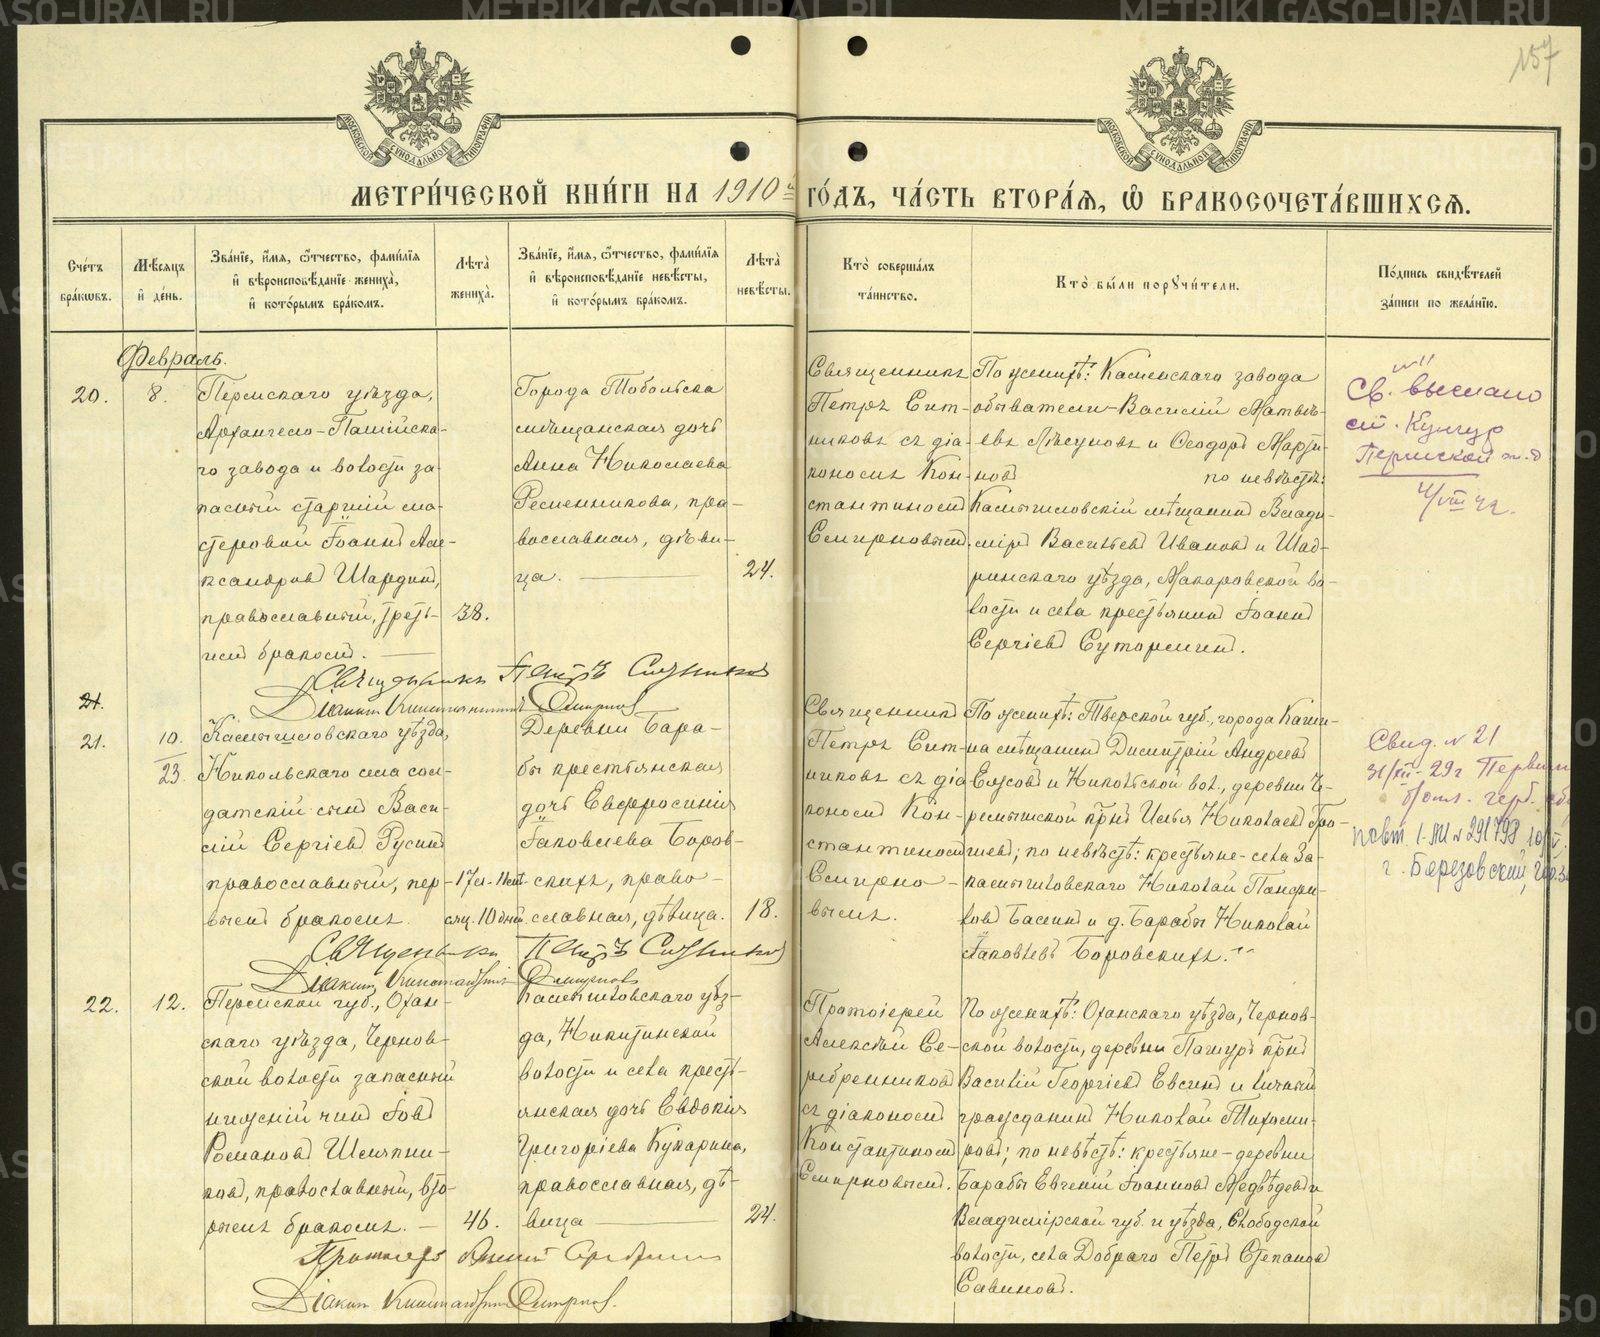 157
МЕТРИЧЕСКОЙ КНИГИ НА 1910й ГОДЪ, ЧАСТЬ ВТОРАЯ, Ѡ БРАКОСОЧЕТАВШИХСЯ.
Счетъ браковъ.
Мѣсяцъ и день.
Званіе, имя, ѿчество, фамилія и вѣроисповѣданіе жениха, и которымъ бракомъ.
Лѣта жениха.
Званіе, имя, ѿчество, фамилія и вѣроисповѣданіе невѣсты, и которымъ бракомъ.
Лѣта невѣсты.
Кто совершалъ таинство.
Кто были поручители.
Подпись свидѣтелей записи по желанію.
Февраль.
20.
8.
Пермскаго уѣзда,
Архангело-Пашійска-
го завода и волости за-
пасный старшій ма-
стеровой Іоаннъ Але-
ксандровъ Шардинъ,
православный, треть-
имъ бракомъ.
38.
Города Тобольска
мѣщанская дочь
Анна Николаева
Ременникова, пра-
вославная, дѣви-
ца.
24.
Священникъ
Петръ Сит-
никовъ съ діа-
кономъ Кон-
стантиномъ
Смирновымъ.
По женихѣ: Каменскаго завода
обыватели-Василій Матвѣ-
евъ Лѣсуновъ и Ѳеодоръ Марты-
новъ по невѣстѣ:
Камышловскій мѣщанинъ Влади-
міръ Васильевъ Ивановъ и Шад-
ринскаго уѣзда, Макаровской во-
лости и села крестьянинъ Іоаннъ
Сергіевъ Суторминъ.
Св. выслано
ст. Кунгур
Пермской ж.д
Священникъ Петръ Ситниковъ
Діаконъ Константинъ Смирновъ
21.
21.
10.
23.
Камышловскаго уѣзда,
Никольскаго села сол-
датскій сынъ Васи-
лій Сергіевъ Русинъ
православный, пер-
вымъ бракомъ.
17 л. 11 мѣ-
сяц. 10 дней
Деревни Бара-
бы крестьянская
дочь Евфросинія
Іаковлева Боров-
скихъ, право-
славная, дѣвица.
18.
Священникъ
Петръ Сит-
никовъ съ діа
кономъ Кон-
стантиномъ
Смирно-
вымъ.
По женихѣ: Тверской губ., города Каши-
на мѣщанинъ Димитрій Андреевъ
Елисовъ и Никольской вол., деревни Че-
ремышской крнъ Илья Николаевъ
по невѣстѣ: крестьяне-села За-
камышловскаго Николай Панфи-
ловъ Баминъ и д. Барабы Николай
Іаковлевъ Боровскихъ.
Свид. № 21
31/XII-29г
г. Березовский,
Священникъ Петръ Ситниковъ
Діаконъ Константинъ Смирновъ
22.
12.
Пермской губ., Охан-
скаго уѣзда, Чернов-
ской волости запасный
нижній чинъ Іовъ
Романовъ Шляпни-
ковъ, православный, вто-
рымъ бракомъ.
46.
Камышловскаго уѣз-
да, Никитинской
волости и села кресть-
янская дочь Евдокія
Григоріева Кукарина,
православная, дѣ-
вица
24.
Протоіерей
Алексѣй Се-
ребренниковъ
съ діакономъ
Константиномъ
Смирновымъ.
По женихѣ: Оханскаго уѣзда, Чернов-
ской волости, деревни Пашуръ крнъ
Василій Георгіевъ Евсинъ и личный
гражданинъ Николай Тихоми-
ровъ; по невѣстѣ: крестьяне-деревни
Барабы Евгеній Іоанновъ Медвѣдевъ и
Владимірской губ. и уѣзда, Слободской
волости, села Добраго Петръ Степановъ
Савиновъ.
Протоіерей Алексій Серебренниковъ
Діаконъ Константинъ Смирновъ.